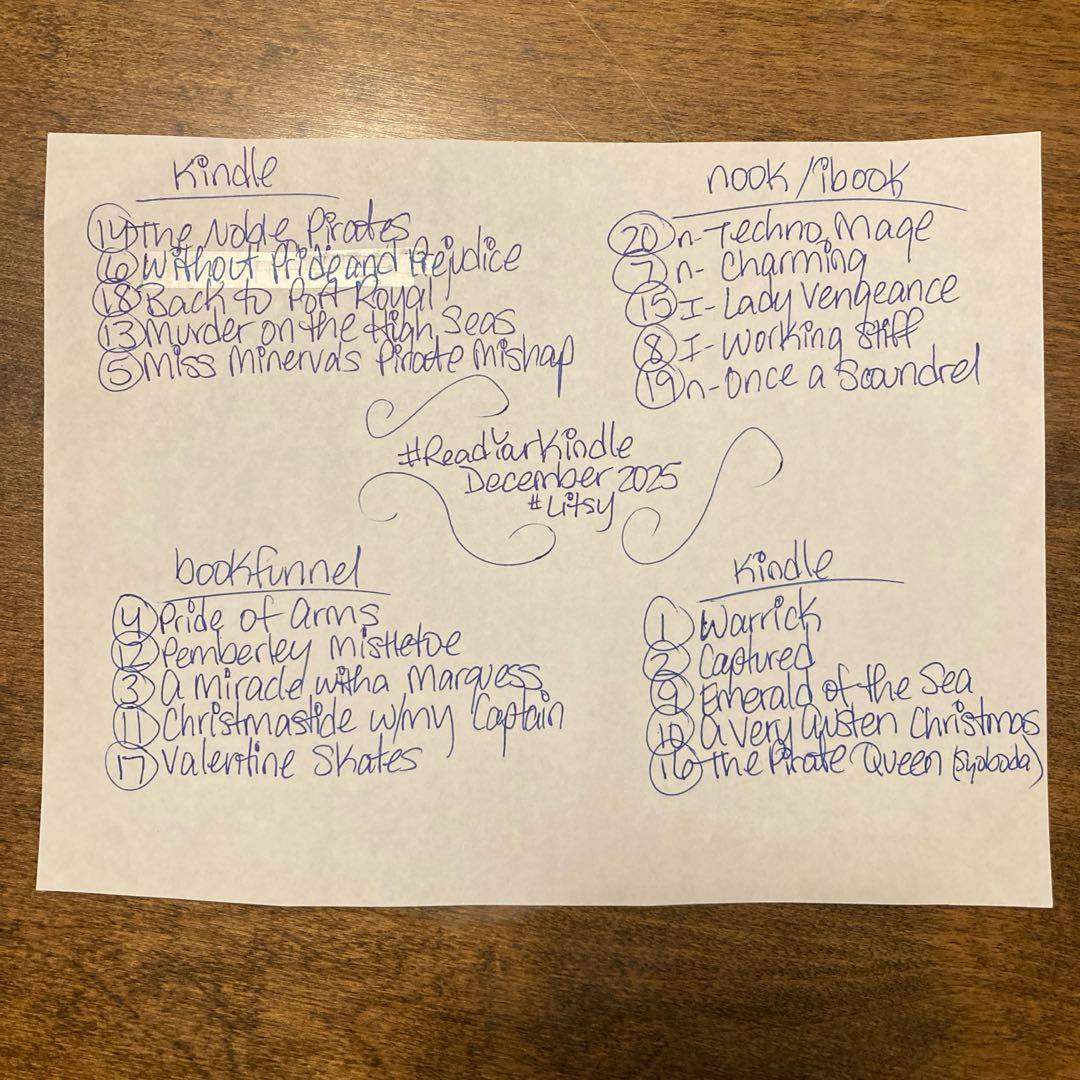 Kindle
14 The Noble Pirates
6 Without Pride and Prejudice
18 Back to Port Royal
13 Murder on the High Seas
5 Miss Minerva's Pirate Mishap
nook/ibook
20 n- Techno Mage
7 n- Charming
15 I- Lady Vengeance
8 I- Working Stiff
19 n- Once a Scoundrel
#ReadYourKindle
December 2025
#Litsy
bookfunnel
4 Pride of Arms
12 Pemberley Mistletoe
3 A Miracle with a Marquess
11 Christmastide w/my Captain
17 Valentine Skates
Kindle
1 Warrick
2 Captured
9 Emerald of the Sea
10 A Very Austen Christmas
16 The Pirate Queen (Svoboda)